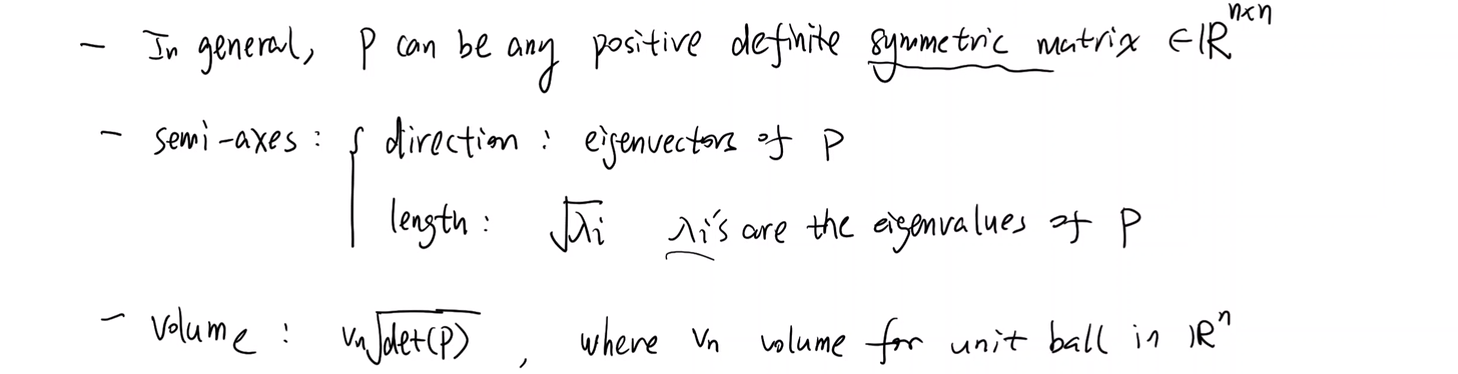 - In general, P can be any positive definite symmetric matrix ∈ ℝⁿˣⁿ
- semi-axes : { direction : eigenvectors of P
length : √λi λi's are the eigenvalues of P
- Volume : Vn√det(P) , where Vn volume for unit ball in ℝⁿ